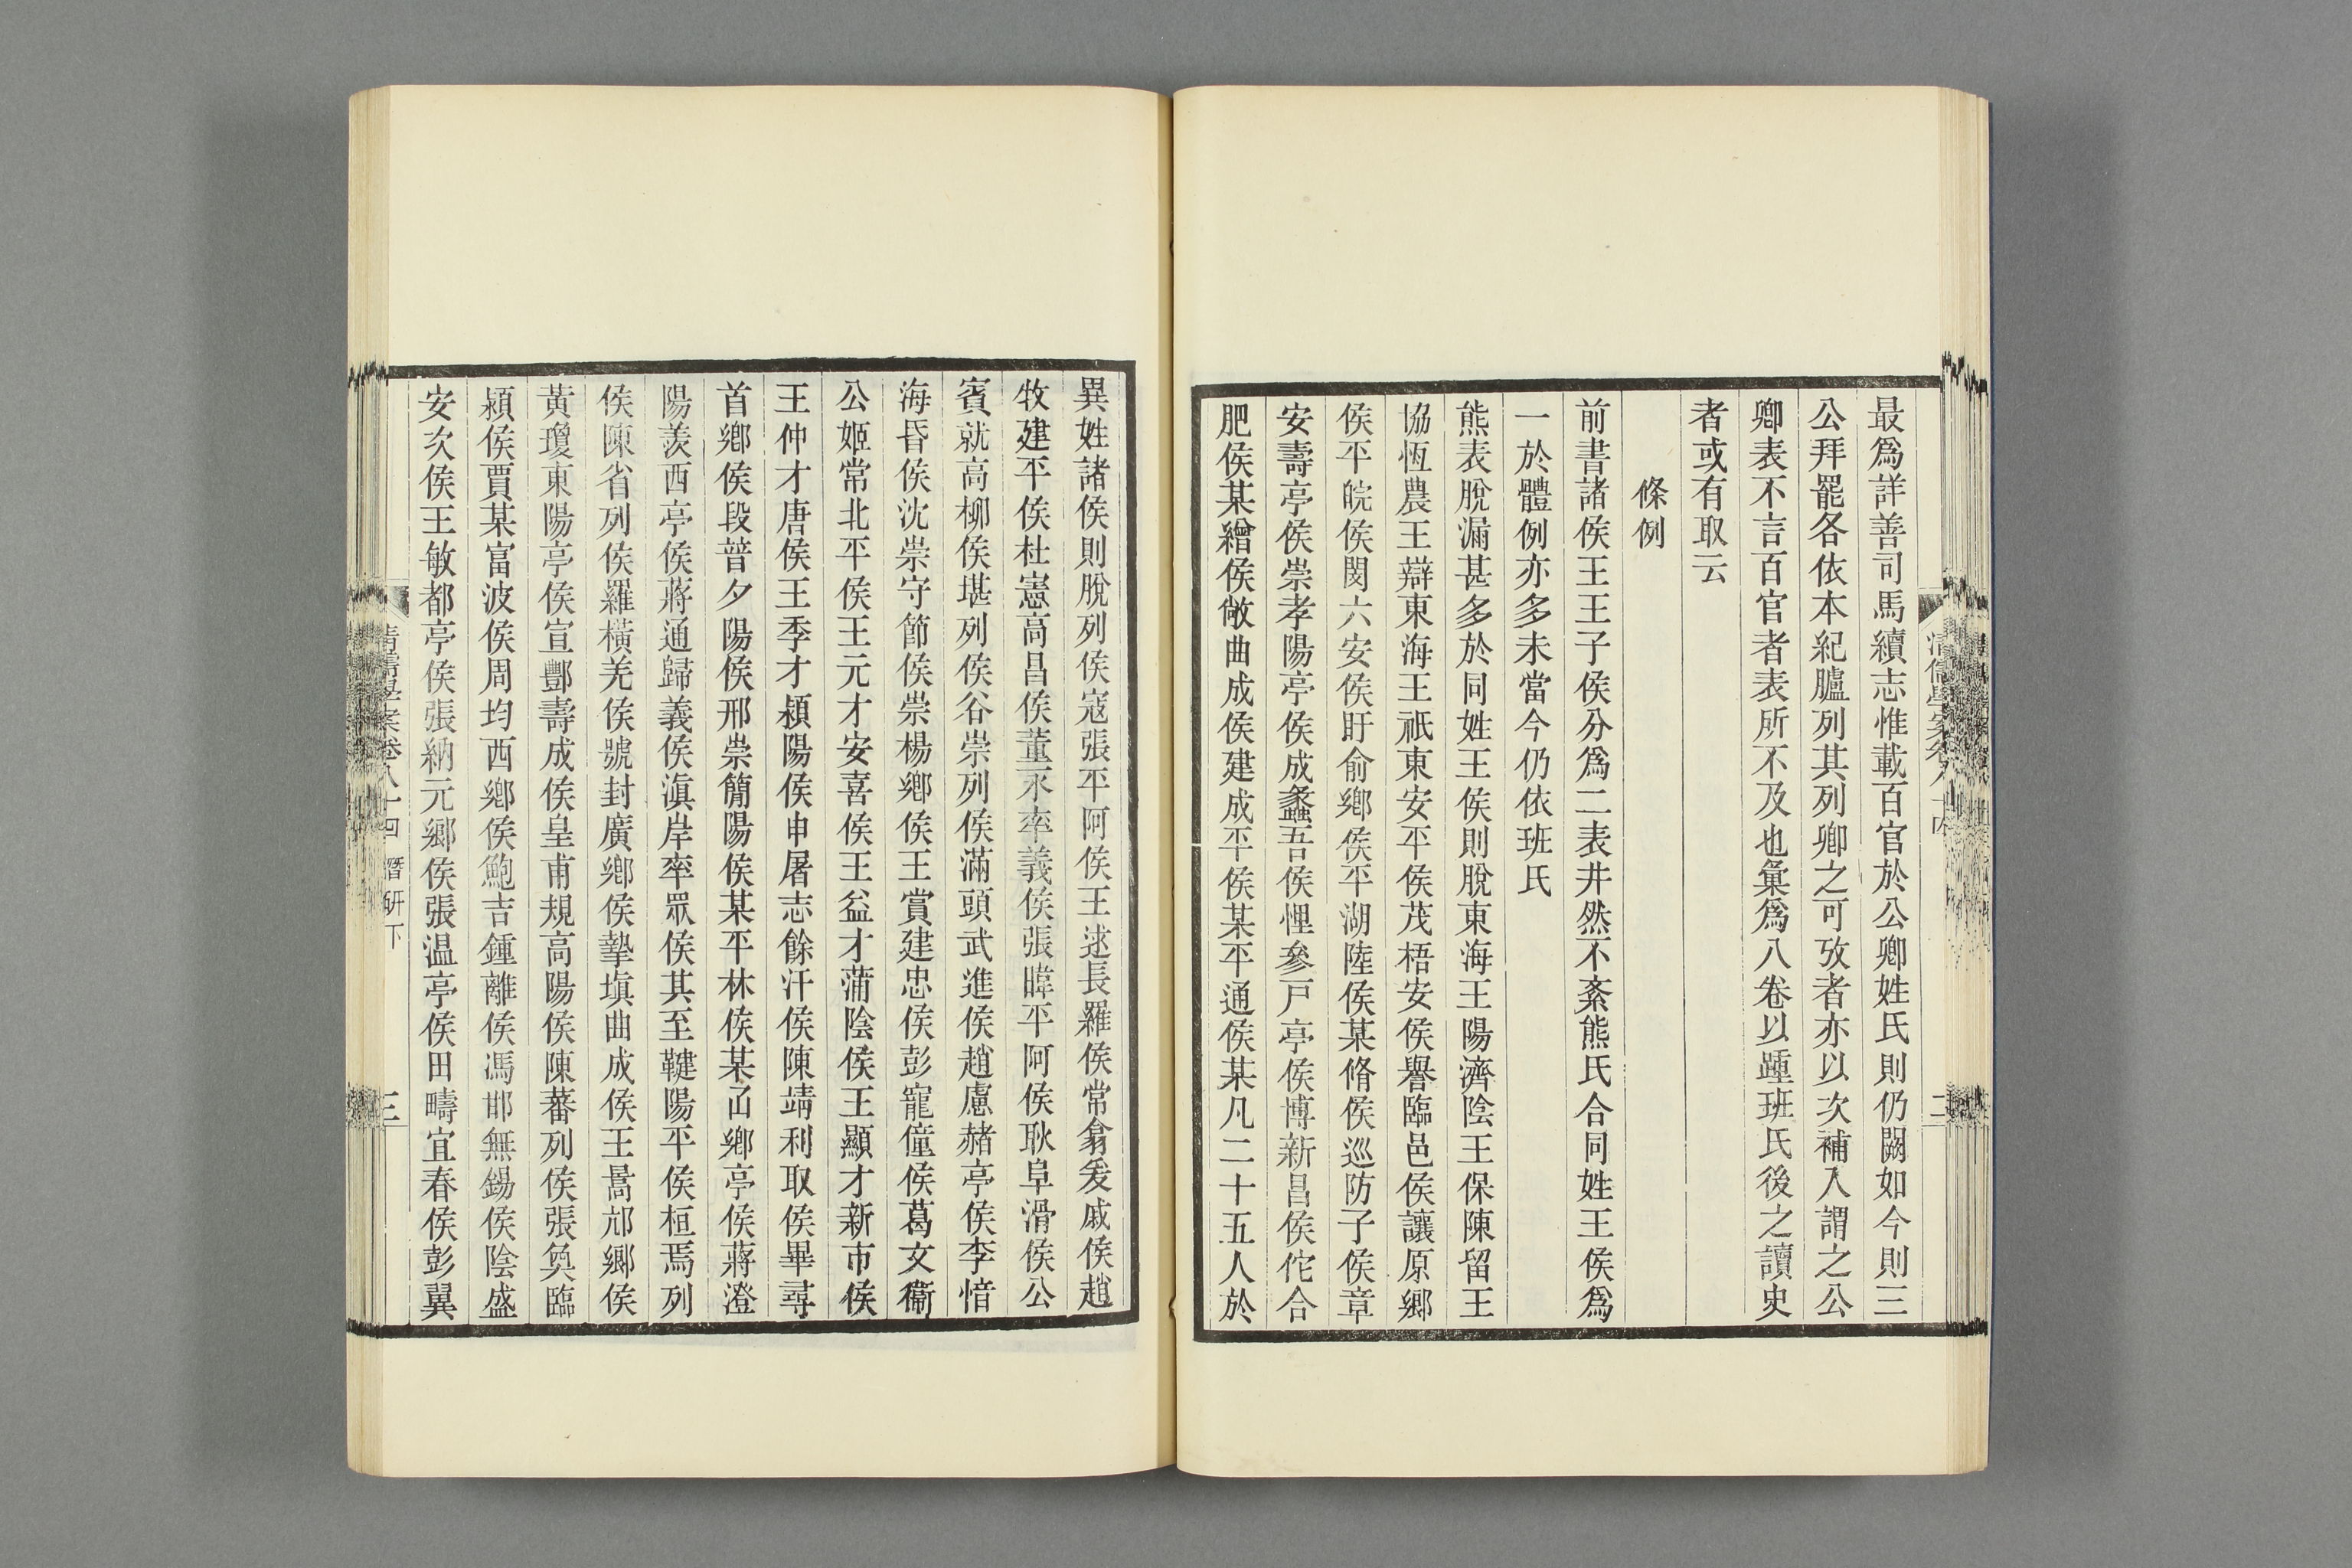 最爲詳善司馬續志惟載百官於公卿姓氏則仍闕如今則三
公拜罷各依本紀臚列其列卿之可攷者亦以次補入謂之公
卿表不言百官者表所不及也彙爲八卷以踵班氏後之讀史
者或有取云
條例
前書諸侯王王子侯分爲二表井然不紊熊氏合同姓王侯爲
一於體例亦多未當今仍依班氏
熊表脫漏甚多於同姓王侯則脫東海王陽濟陰王保陳留王
協恆農王辯東海王祇東安平侯茂梧安侯譽臨邑侯讓原鄉
侯平皖侯閔六安侯盱俞鄉侯平湖陸侯某脩侯巡防子侯章
安壽亭侯崇孝陽亭侯成蠡吾侯悝參戶亭侯博新昌侯佗合
肥侯某繒侯敞曲成侯建成平侯某平通侯某凡二十五人於
異姓諸侯則脫列侯寇張平阿侯王逑長羅侯常翕爰戚侯趙
牧建平侯杜憲高昌侯董永率義侯張暐平阿侯耿阜滑侯公
賓就高柳侯堪列侯谷崇列侯滿頭武進侯趙慮赭亭侯李愔
海昏侯沈崇守節侯崇楊鄉侯王賞建忠侯彭寵僮侯葛文衞
公姬常北平侯王元才安喜侯王益才蒲陰侯王顯才新市侯
王仲才唐侯王季才潁陽侯申屠志餘汗侯陳靖利取侯畢尋
首鄉侯段普夕陽侯邢崇簡陽侯某平林侯某𠚪鄉亭侯蔣澄
陽羨西亭侯蔣通歸義侯滇岸率眾侯其至鞬陽平侯桓焉列
侯陳省列侯羅橫羌侯號封廣鄉侯摯塡曲成侯王暠邟鄉侯
黃瓊東陽亭侯宣酆壽成侯皇甫規高陽侯陳蕃列侯張奐臨
潁侯賈某富波侯周均西鄉侯鮑吉鍾離侯馮邯無錫侯陰盛
安次侯王敏都亭侯張納元鄉侯張温亭侯田疇宜春侯彭翼
清儒學案卷八十四 潛研下
三